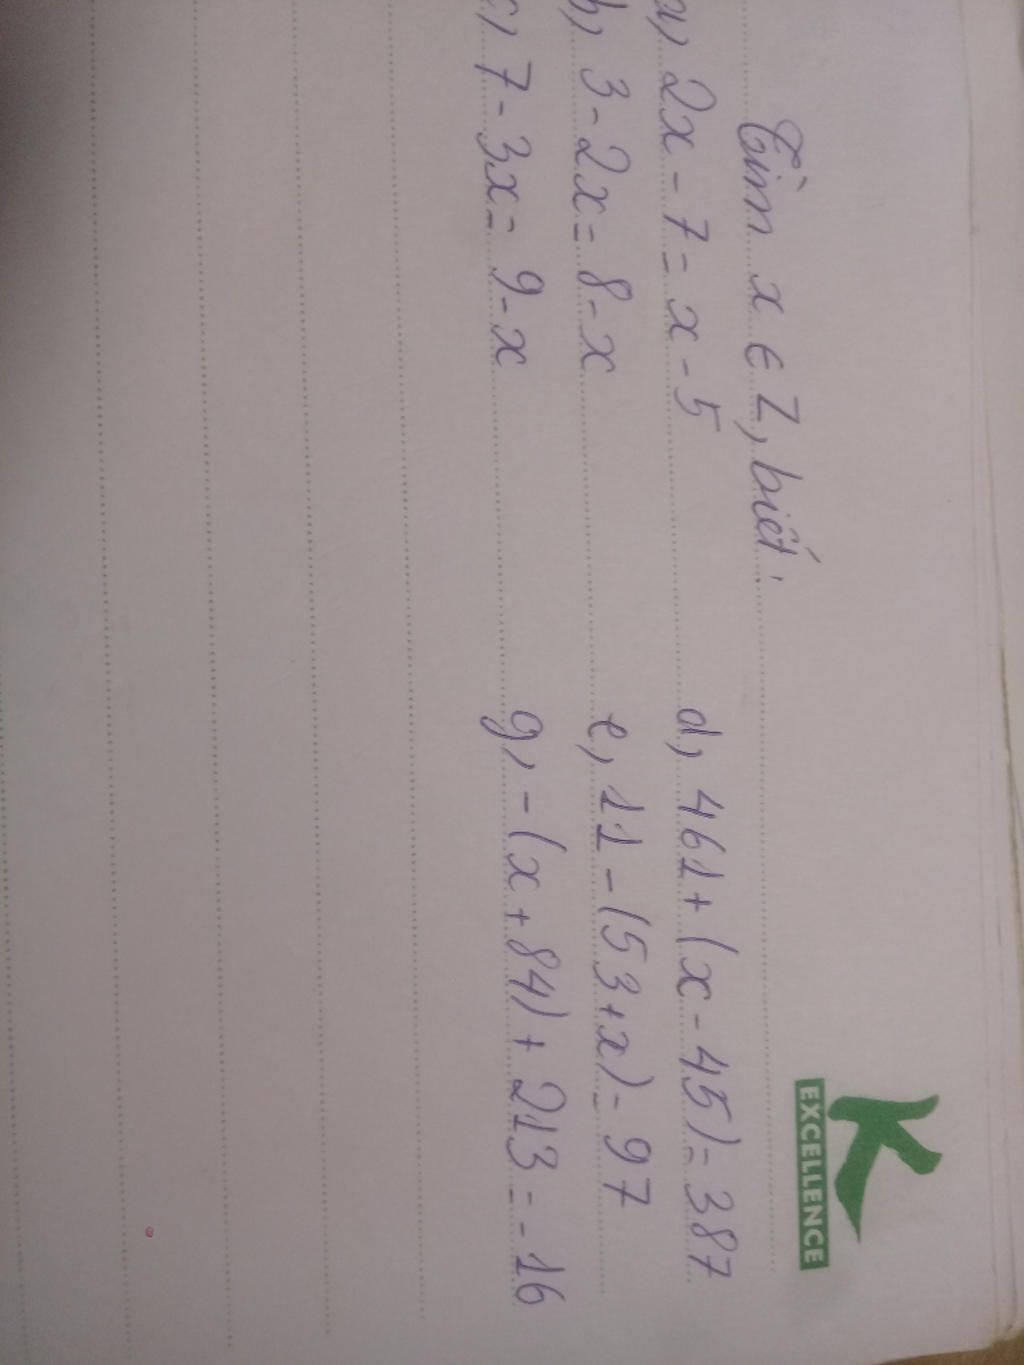 K
EXCELLENCE
Tìm x ∈ Z, biết:
a, 2x - 7 = x - 5
d, 461 + (x - 45) = 387
b, 3 - 2x = 8 - x
e, 11 - (53 + x) = 97
c, 7 - 3x = 9 - x
g, -(x + 84) + 213 = -16